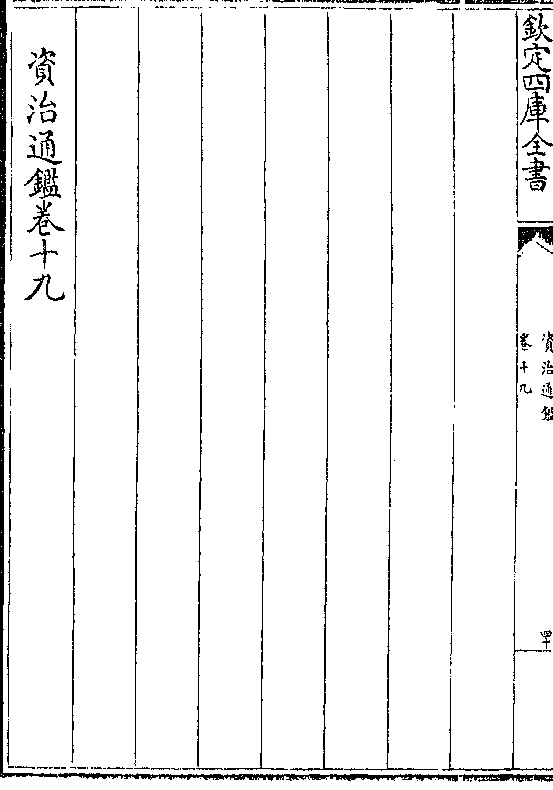 欽定四庫全書
資治通鑑
卷十九
四十
資治通鑑卷十九